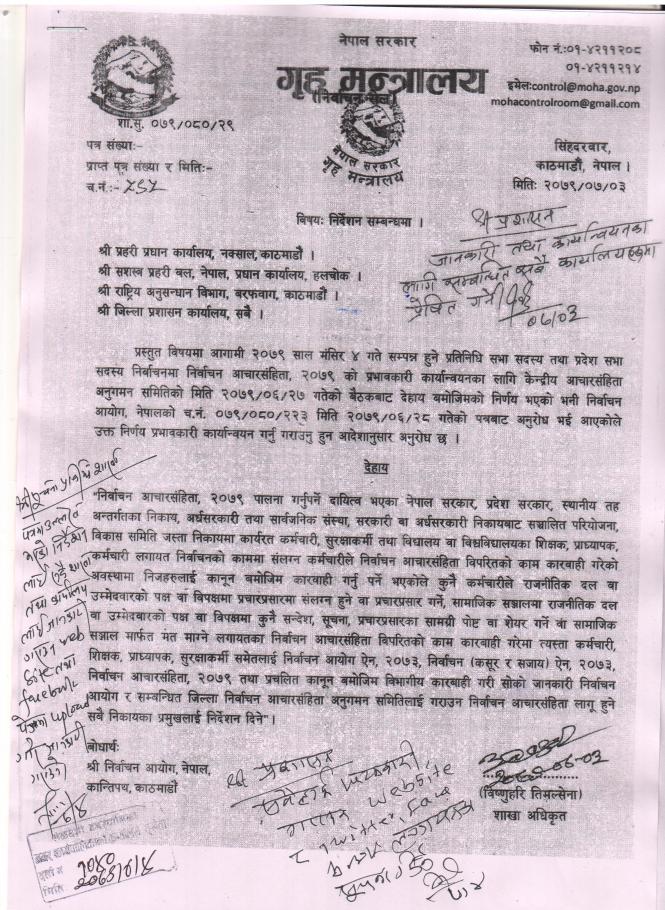 नेपाल सरकार
गृह मन्त्रालय
(निर्वाचन सेल)
फोन नं.:०१-४२११२०८
०१-४२११२१४
इमेल:control@moha.gov.np
mohacontrolroom@gmail.com
शा.सु. ०७९/०८०/२९
नेपाल सरकार
गृह मन्त्रालय
पत्र संख्या:-
प्राप्त पत्र संख्या र मिति:-
च.नं.:-
सिंहदरबार,
काठमाडौं, नेपाल ।
मिति: २०७९/०७/०३
विषय: निर्देशन सम्बन्धमा ।
श्री प्रशासन
जानकारी तथा कार्यान्वयनका
लागि सम्बन्धित सबै कार्यालयहरुमा
प्रेषित गर्ने
श्री प्रहरी प्रधान कार्यालय, नक्साल, काठमाडौं ।
श्री सशस्त्र प्रहरी बल, नेपाल, प्रधान कार्यालय, हलचोक ।
श्री राष्ट्रिय अनुसन्धान विभाग, बरफवाग, काठमाडौं ।
श्री जिल्ला प्रशासन कार्यालय, सबै ।
प्रस्तुत विषयमा आगामी २०७९ साल मंसिर ४ गते सम्पन्न हुने प्रतिनिधि सभा सदस्य तथा प्रदेश सभा
सदस्य निर्वाचनमा निर्वाचन आचारसंहिता, २०७९ को प्रभावकारी कार्यान्वयनका लागि केन्द्रीय आचारसंहिता
अनुगमन समितिको मिति २०७९/०६/२७ गतेको बैठकबाट देहाय बमोजिमको निर्णय भएको भनी निर्वाचन
आयोग, नेपालको च.नं. ०७९/०८०/२२३ मिति २०७९/०६/२८ गतेको पत्रबाट अनुरोध भई आएकोले
उक्त निर्णय प्रभावकारी कार्यान्वयन गर्नु गराउनु हुन आदेशानुसार अनुरोध छ ।
देहाय
"निर्वाचन आचारसंहिता, २०७९ पालना गर्नुपर्ने दायित्व भएका नेपाल सरकार, प्रदेश सरकार, स्थानीय तह
अन्तर्गतका निकाय, अर्धसरकारी तथा सार्वजनिक संस्था, सरकारी वा अर्धसरकारी निकायबाट सञ्चालित परियोजना,
विकास समिति जस्ता निकायमा कार्यरत कर्मचारी, सुरक्षाकर्मी तथा विद्यालय वा विश्वविद्यालयका शिक्षक, प्राध्यापक,
कर्मचारी लगायत निर्वाचनको काममा संलग्न कर्मचारीले निर्वाचन आचारसंहिता विपरितको काम कारबाही गरेको
अवस्थामा निजहरुलाई कानून बमोजिम कारबाही गर्नु पर्ने भएकोले कुनै कर्मचारीले राजनीतिक दल वा
उम्मेदवारको पक्ष वा विपक्षमा प्रचारप्रसारमा संलग्न हुने वा प्रचारप्रसार गर्ने, सामाजिक सञ्जालमा राजनीतिक दल
वा उम्मेदवारको पक्ष वा विपक्षमा कुनै सन्देश, सूचना, प्रचारप्रसारका सामग्री पोष्ट वा शेयर गर्ने वा सामाजिक
सञ्जाल मार्फत मत माग्ने लगायतका निर्वाचन आचारसंहिता विपरितको काम कारबाही गरेमा त्यस्ता कर्मचारी,
शिक्षक, प्राध्यापक, सुरक्षाकर्मी समेतलाई निर्वाचन आयोग ऐन, २०७३, निर्वाचन (कसूर र सजाय) ऐन, २०७३,
निर्वाचन आचारसंहिता, २०७९ तथा प्रचलित कानून बमोजिम विभागीय कारबाही गरी सोको जानकारी निर्वाचन
आयोग र सम्बन्धित जिल्ला निर्वाचन आचारसंहिता अनुगमन समितिलाई गराउन निर्वाचन आचारसंहिता लागू हुने
सबै निकायका प्रमुखलाई निर्देशन दिने"।
तथा कार्यालय
web
site तथा
facebook
पेजमा upload
बोधार्थ:
श्री निर्वाचन आयोग, नेपाल,
कान्तिपथ, काठमाडौं
श्री प्रशासन
website
twitter, face
book
(विष्णुहरि तिमल्सेना)
शाखा अधिकृत
मिति